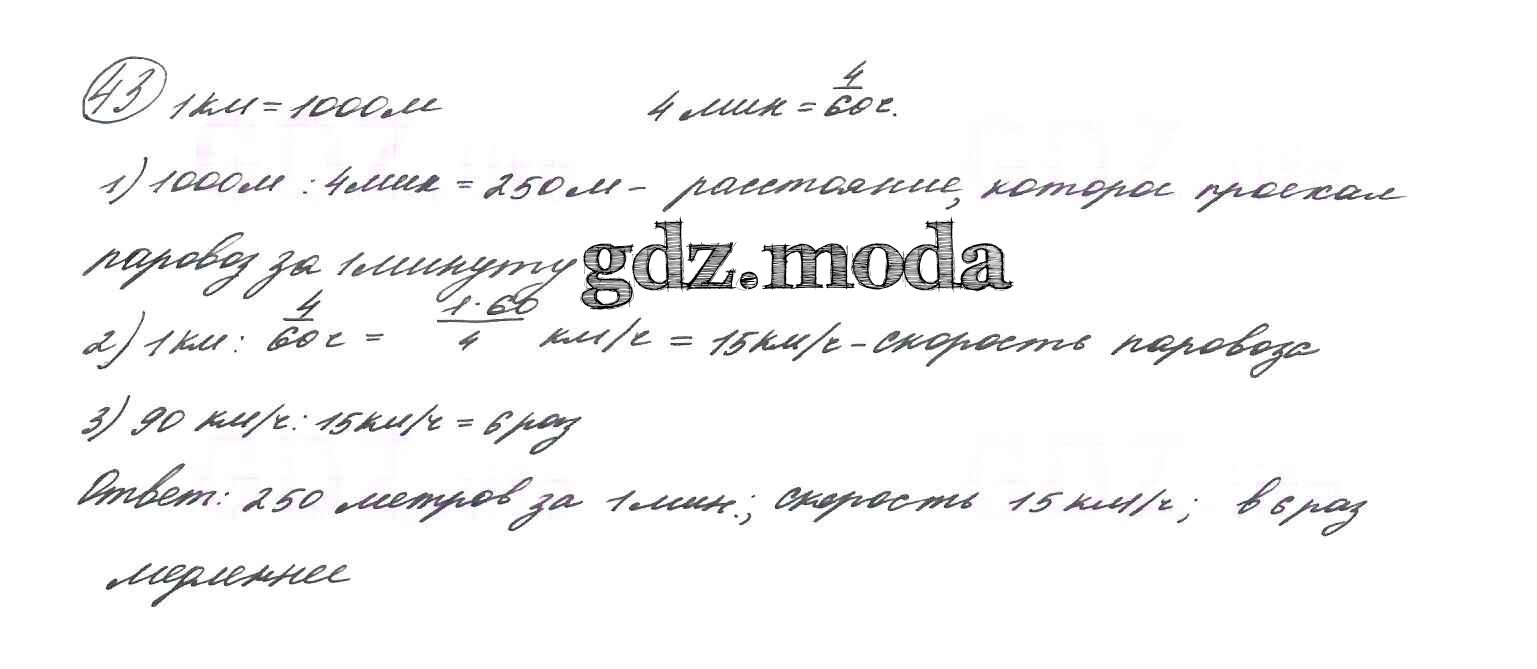 43 1км = 1000м 4 мин = 4/60 ч.
1) 1000м : 4мин = 250м – расстояние, которое проехал
паровоз за 1 минуту
gdz.moda
2) 1км : 4/60 ч = 1·60/4 км/ч = 15км/ч – скорость паровоза
3) 90 км/ч : 15км/ч = 6 раз
Ответ: 250 метров за 1 мин.; скорость 15 км/ч; в 6 раз
медленнее